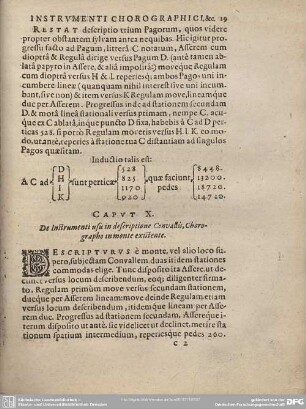 INSTRVMENTI CHOROGRAPHICI, &c. 19
RESTAT descriptio trium Pagorum, quos videre
propter obstantem sylvam antea nequibas. Hic igitur pro-
gressu facto ad Pagum, litterâ C notatum, Asserem cum
dioptrâ & Regulâ dirige versus Pagum D. (antè tamen ab-
latâ papyro in Assere, & aliâ impositâ) moveque Regulam
cum dioptrâ versus H & I. reperiesq; ambos Pagos uni in-
cumbere lineæ (quanquam nihil interest sive uni incum-
bant, sive non) & item versus K Regulam move, lineamque
duc per Asserem. Progressus inde ad stationem secundam
D. & motâ lineâ stationali versus primam, nempe C. acu-
que ex C. ablatâ, inque puncto D fixa, habebis à C ad D per-
ticas 528. si porrò Regulam moveris versus H. I. K. como-
do, ut antè, reperies à statione tua C distantiam ad singulos
Pagos quæsitam.
Inductio talis est:
A C ad { D H I K } sunt perticæ { 528 825 1170 920 } quæ faciunt pedes { 8448. 13200. 18720. 14720.
CAPVT X.
De Instrumenti usu in descriptione Convallis, Choro-
grapho in monte existente.
DESCRIPTVRVS è monte, vel alio loco su-
pero, subjectam Convallem duas itidem stationes
commodas elige. Tunc disposito ita Assere, ut de-
clinet versus locum describendum, eoq; diligenter firma-
to, Regulam primùm move versus secundam stationem,
ducque per Asserem lineam: move deinde Regulam etiam
versus locum describendum, itidemque lineam per Asse-
rem duc. Progressus ad stationem secundam, Assereque i-
terum disposito ut antè, sic videlicet ut declinet, metire sta-
tionum spatium intermedium, reperiesque pedes 260.
C 2